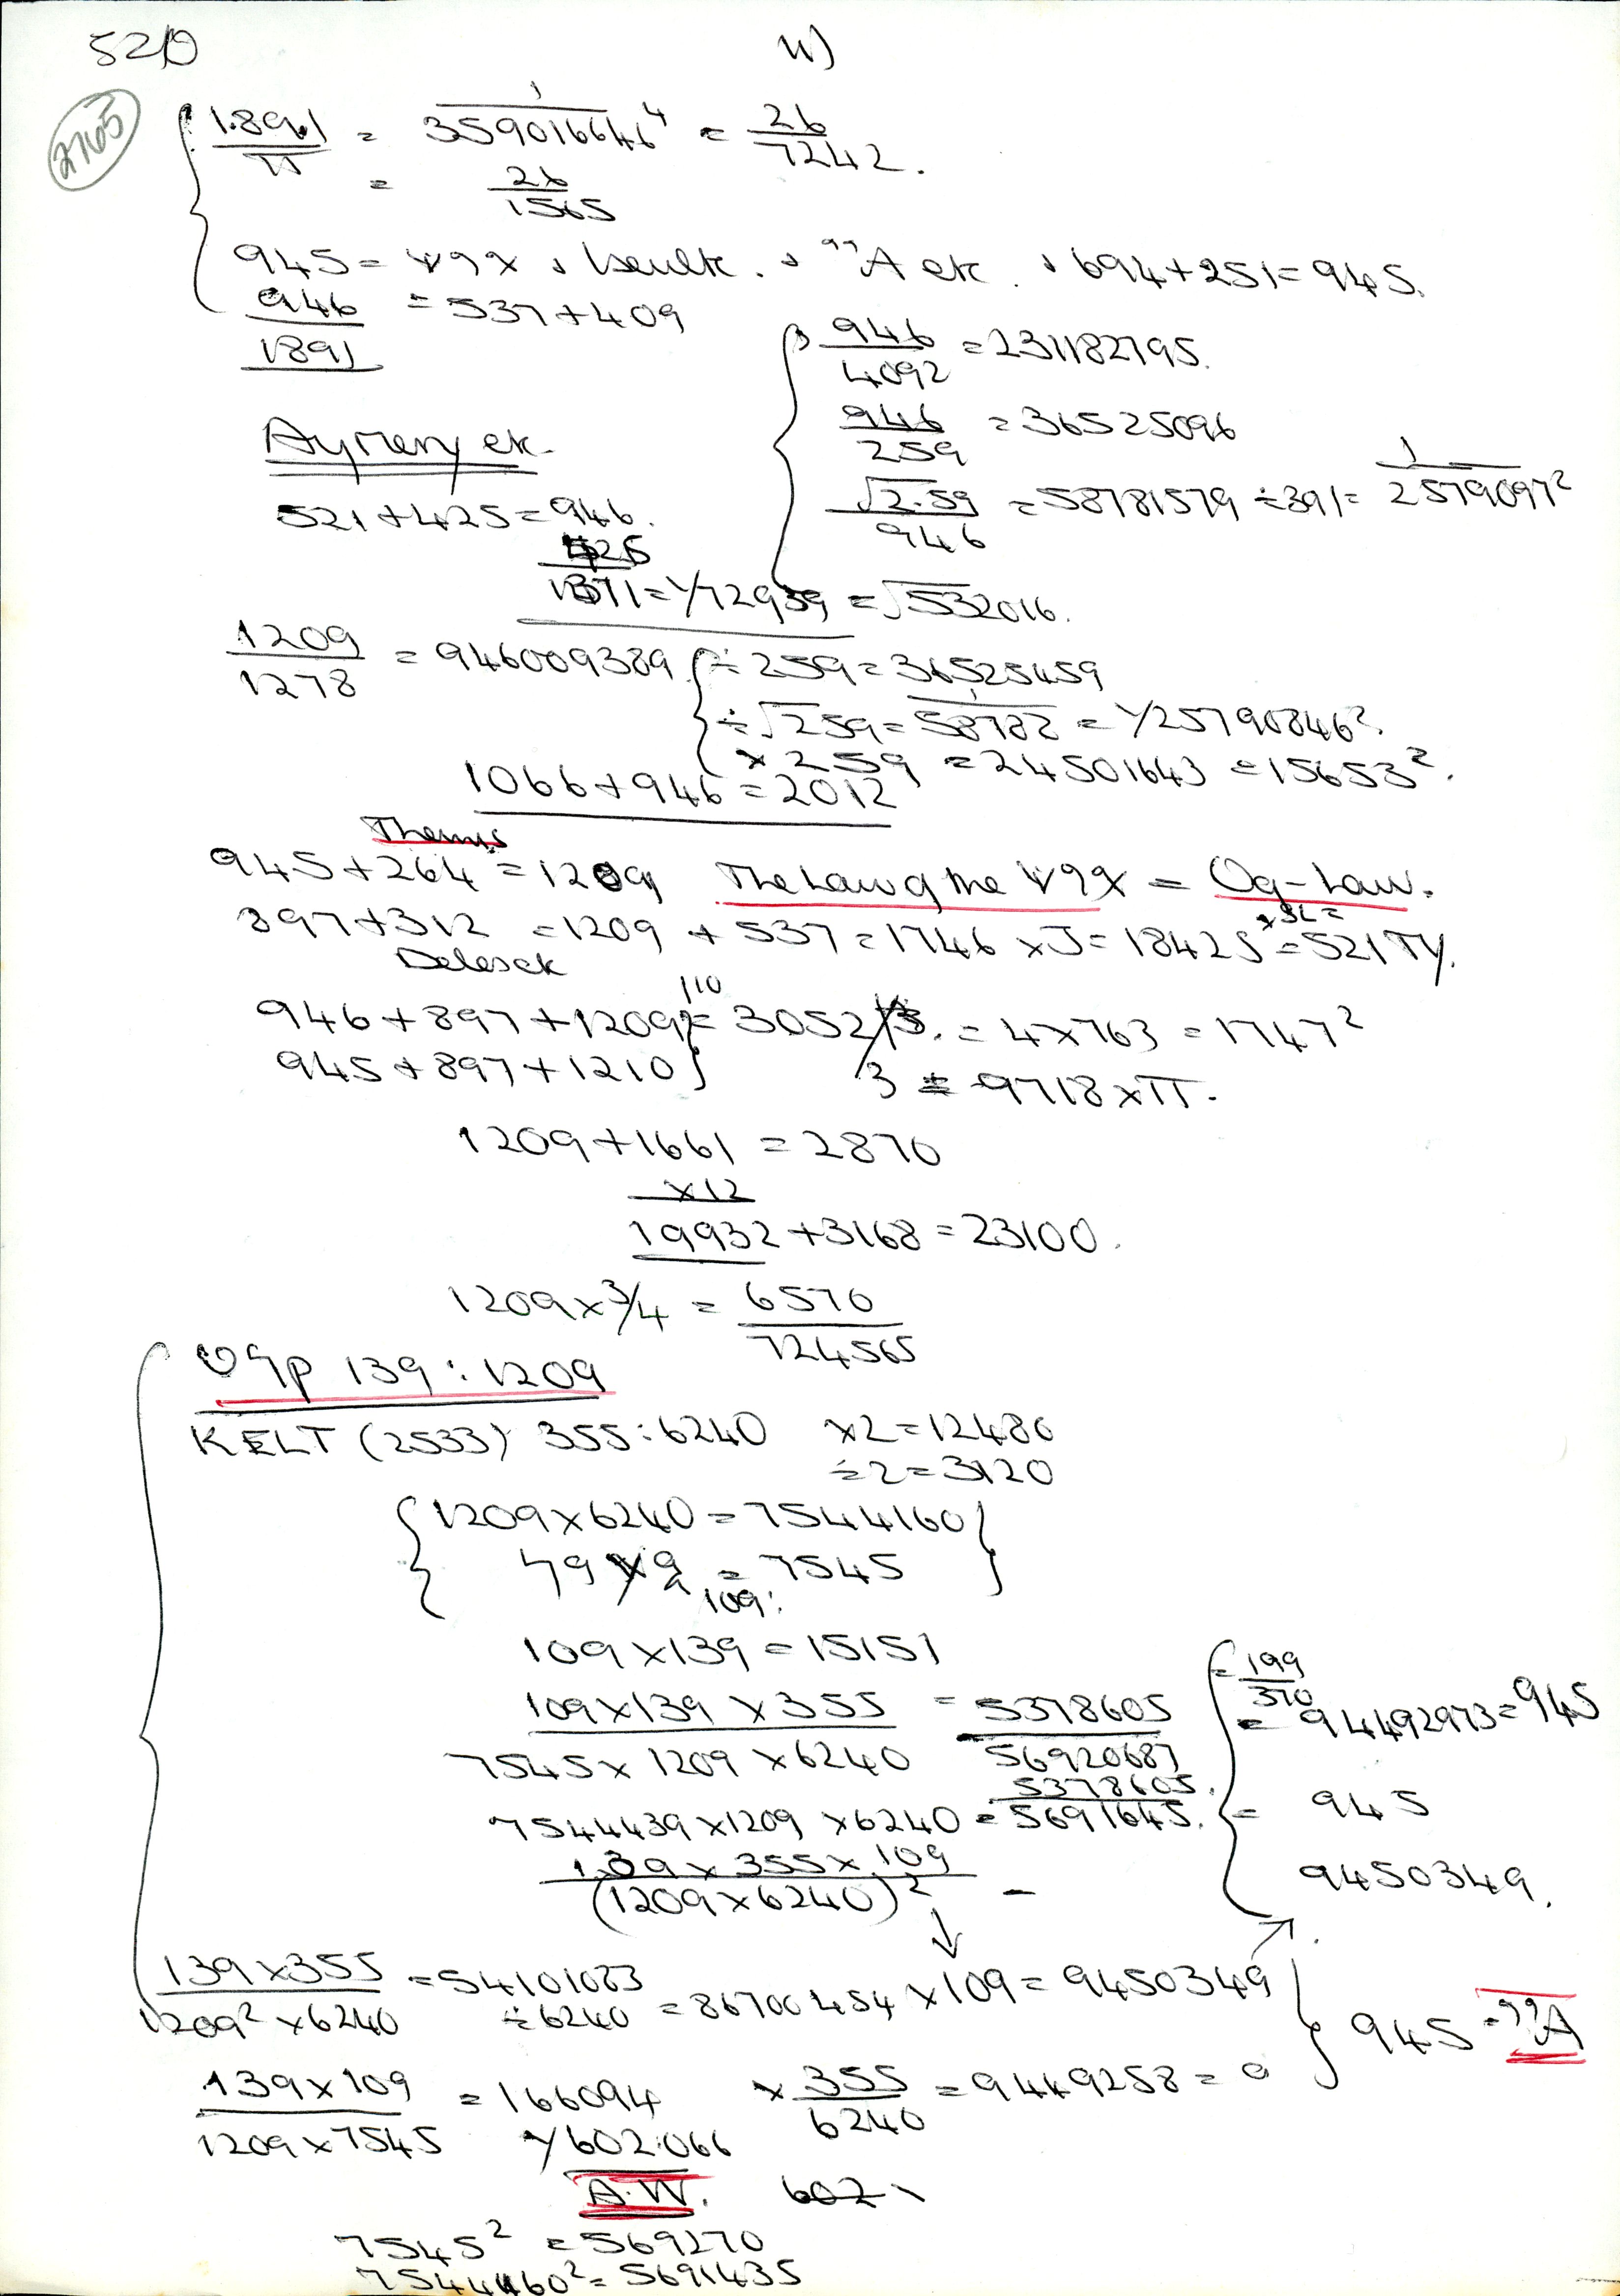 520
4)
2765
1.891/π = 1/359016646⁴ = 26/7242.
= 26/1565
945 = , . , ⁹⁹A etc. , 694+251=945.
946 = 537+409
1891
946/4092 = 231182795.
946/259 = 36525096
√2.59/946 = 58781579 ÷391= 1/2579097²
Aymery etc.
521+425=946.
425
1371=1/72939 = √532016.
1209/1278 = 946009389. ÷259=36525459
÷√259=58782 = 1/25790846²
×259 = 24501643 =15653².
1066+946=2012
Themis
945+264=1209 The Law of the = Og-Law.
897+312 =1209 +537=1746 ×J=18425 ×SL= =521TY.
Delesek
110
946+897+1209 = 3052/3. = 4×763 = 1747²
945+897+1210 3 = 9718×π.
1209+1661 = 2870
×12
19932+3168=23100.
1209×3/4 = 6570/724565
139:1209
KELT (2533) 355:6240 ×2=12480
÷2=3120
1209×6240=7544160
79 × 9 = 7545
109:
109×139=15151
109×139×355/7545×1209×6240 = 5378605/56920687 = 199/370
= 94492973=945
7544439×1209×6240 = 5378605/5691645. = 945
139×355×109/(1209×6240)² – 9450349.
139×355/1209²×6240 =54101083 ÷6240 =86700454 ×109=9450349
945 = ⁹⁹A
139×109/1209×7545 =166094 ×355/6240 =9449258=
1/602.066
A.W. 602
7545² =569270
7544460²=5691435